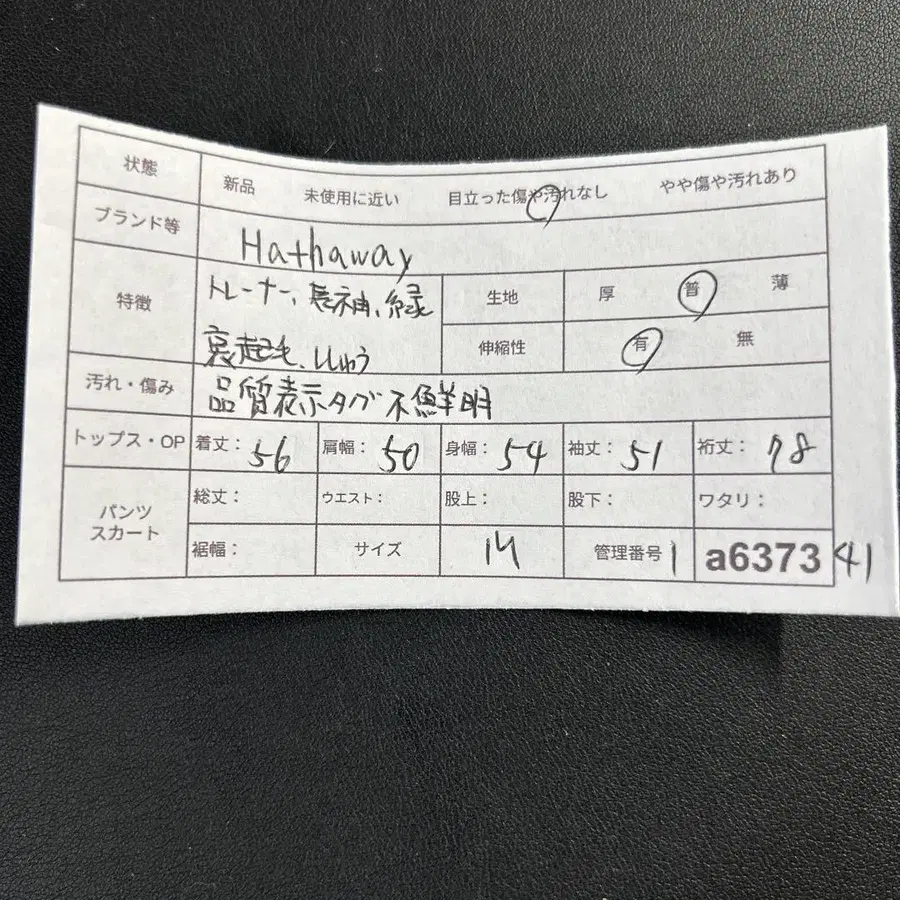 状態 新品 未使用に近い 目立った傷や汚れなし やや傷や汚れあり
ブランド等 Hathaway
特徴 トレーナー、長袖、緑 生地 厚 普 薄
裏起毛、ししゅう 伸縮性 有 無
汚れ・傷み 品質表示タグ不鮮明
トップス・OP 着丈: 56 肩幅: 50 身幅: 54 袖丈: 51 裄丈: 78
パンツ スカート 総丈: ウエスト: 股上: 股下: ワタリ:
裾幅: サイズ M 管理番号 1 a6373 41